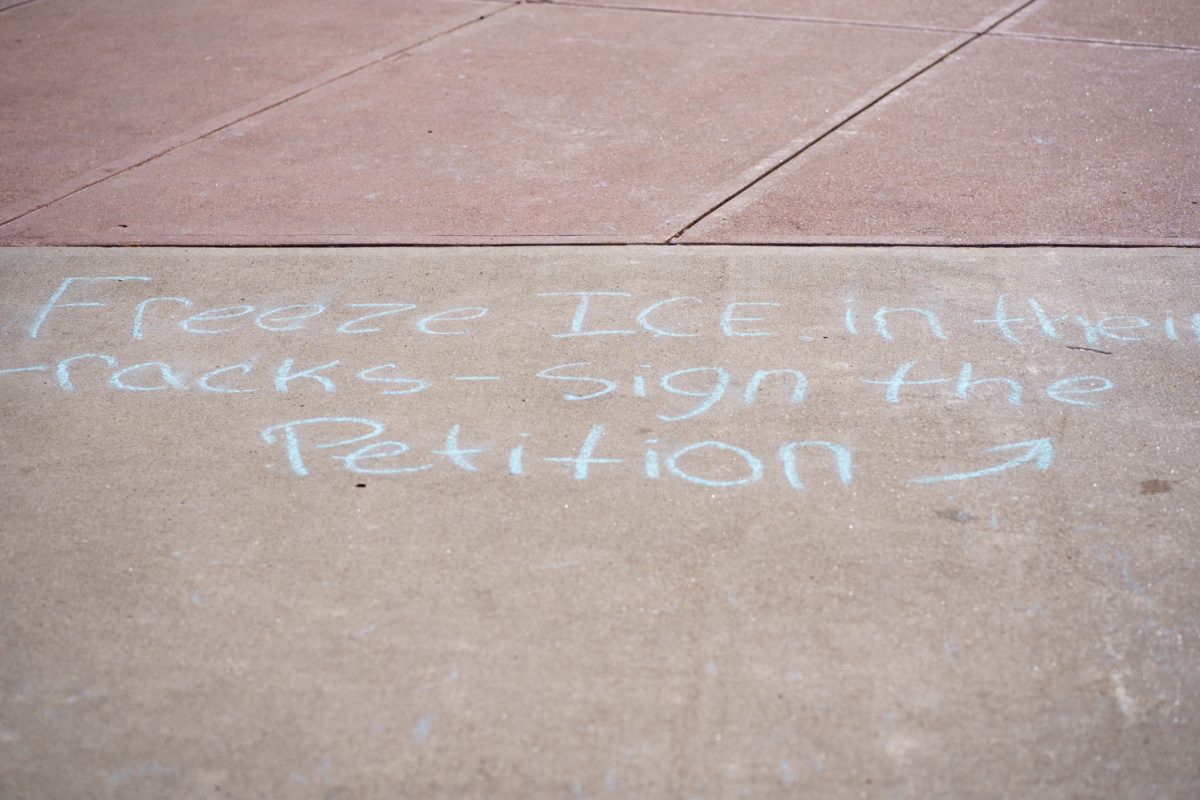 Freeze ICE in their
tracks - sign the
Petition ↗